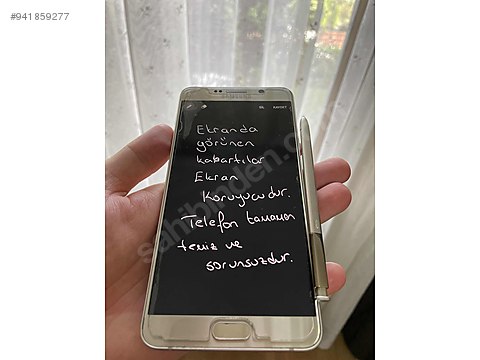 #941859277
SAMSUNG
SİL KAYDET
Ekranda
görünen
kabartılar
Ekran
Koruyucudur.
Telefon tamamen
temiz ve
sorunsuzdur.
sahibinden.com